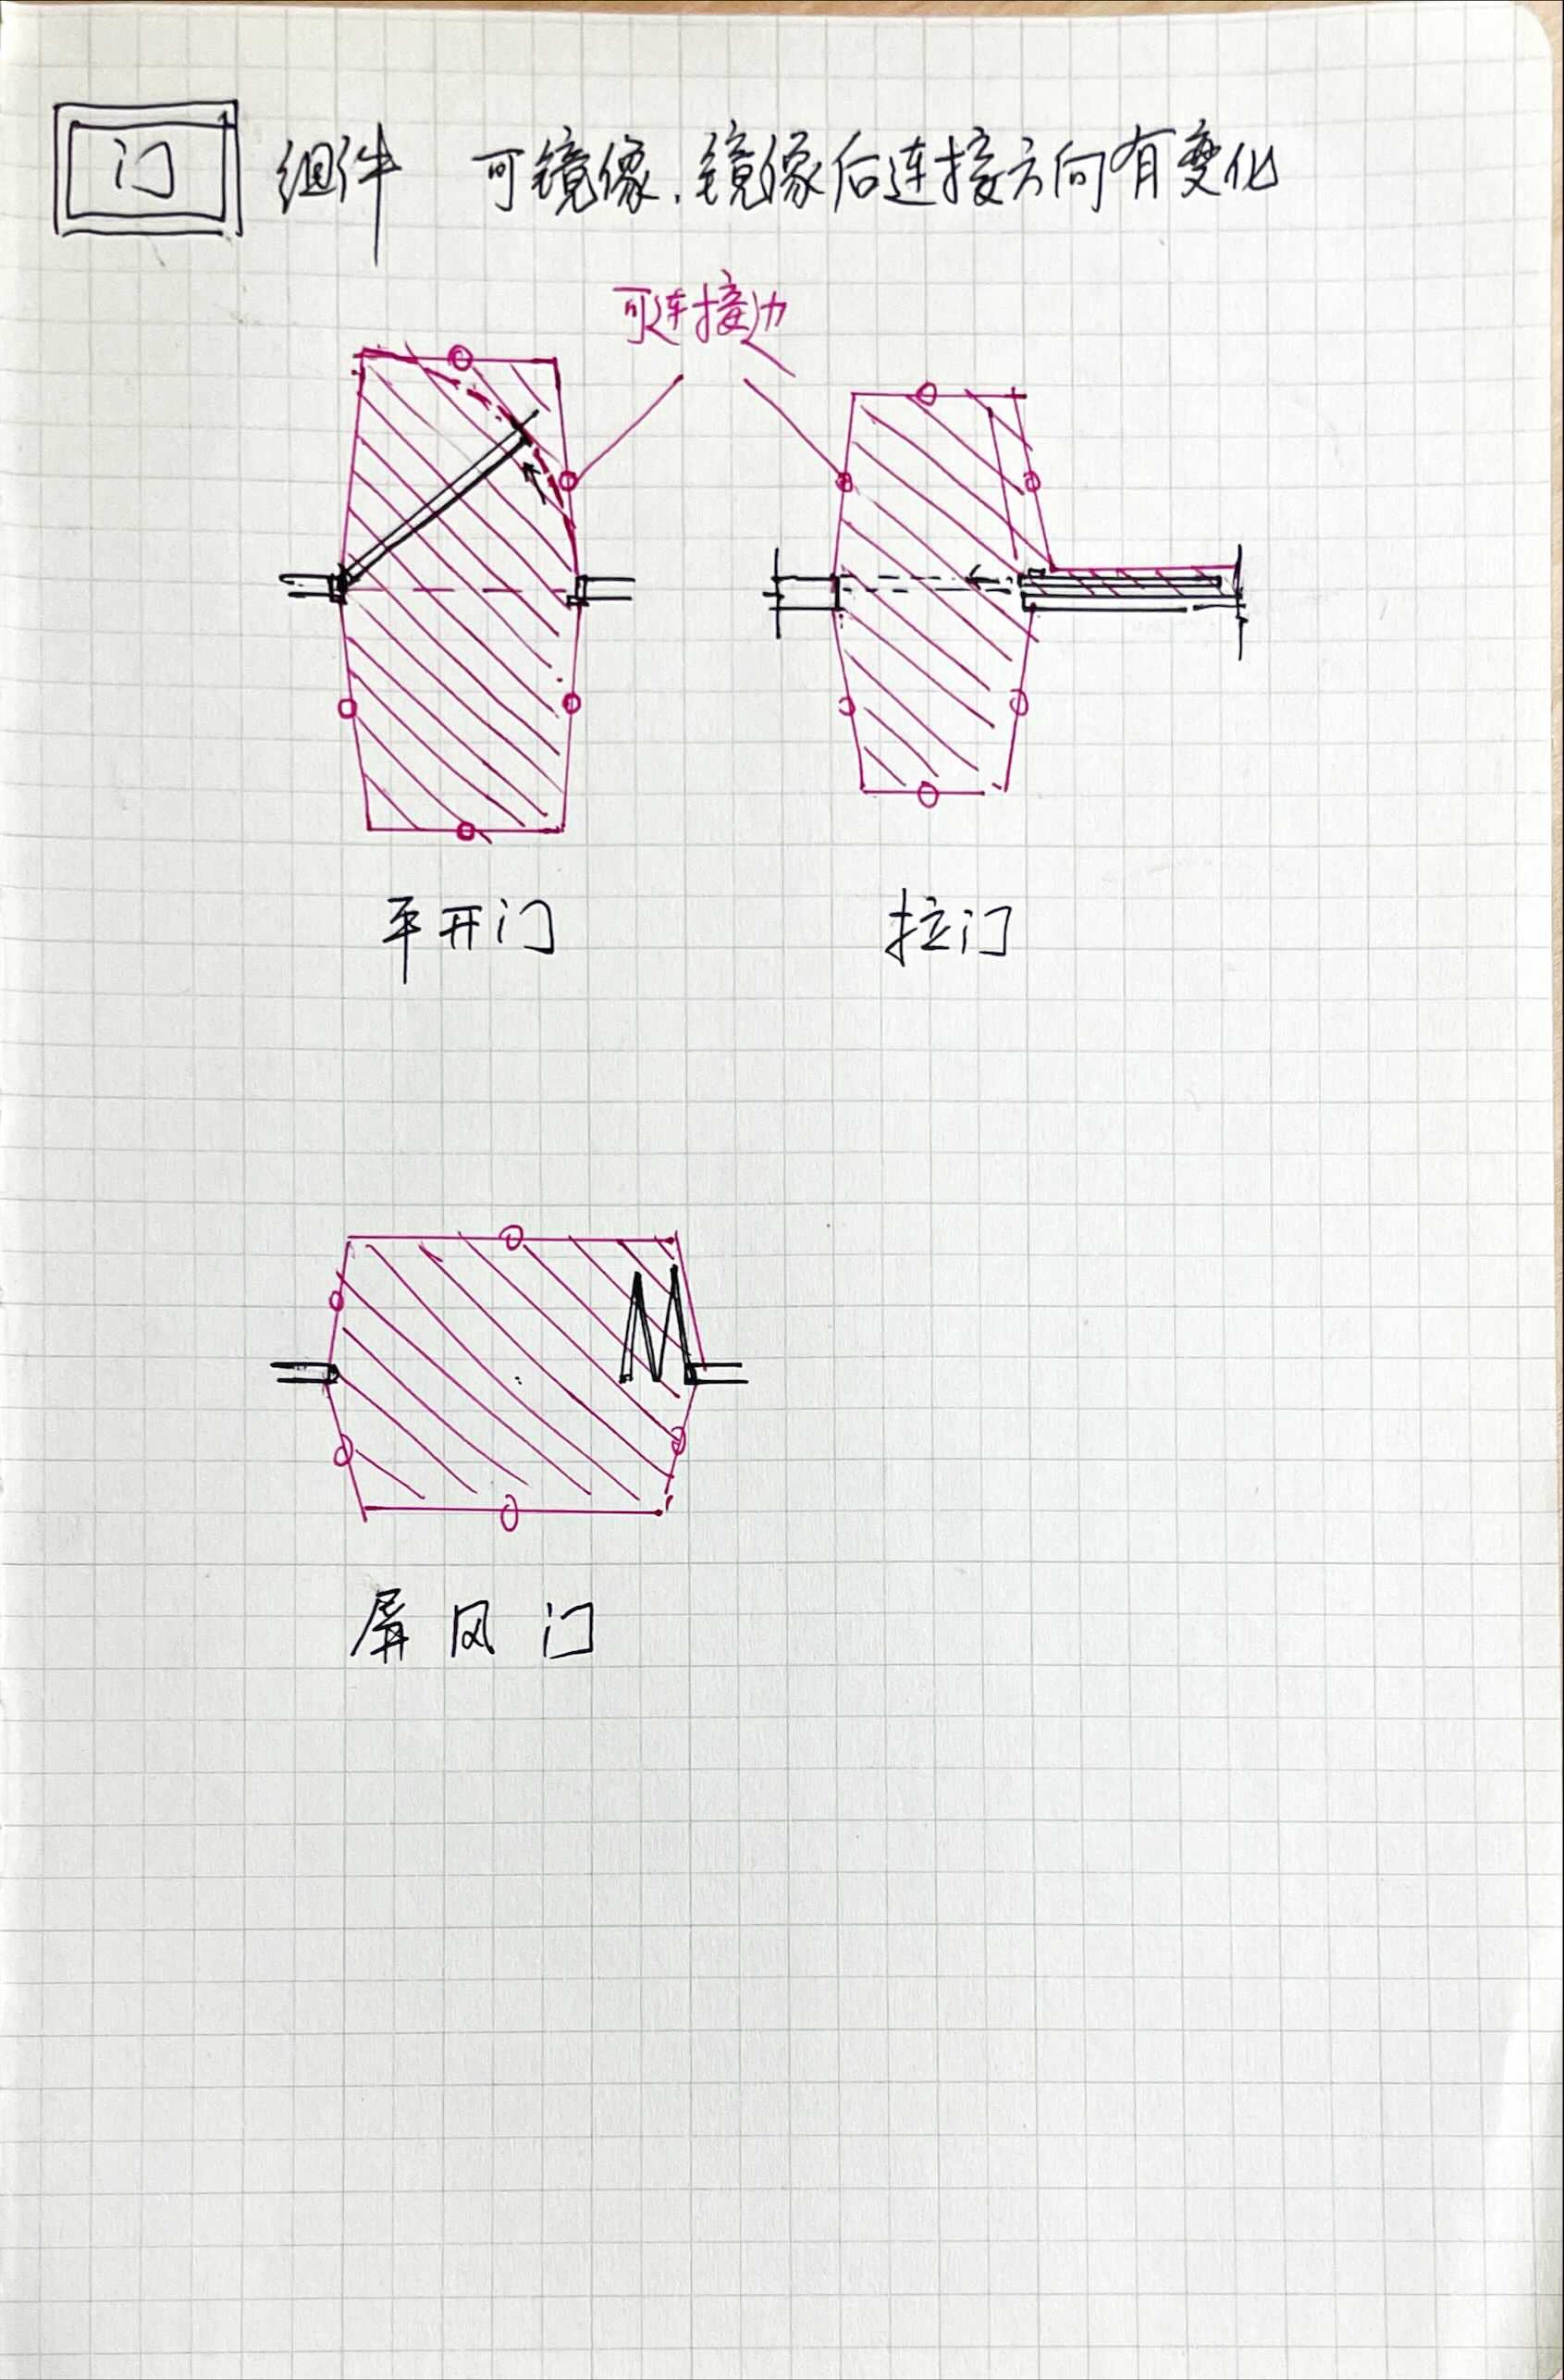 门 组件 可镜像.镜像后连接方向有变化
可连接边
平开门 拉门
屏风门